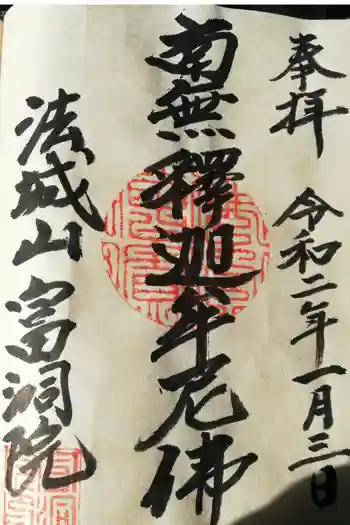 奉拝
令和二年一月三日
南無釋迦牟尼佛
法城山富洞院